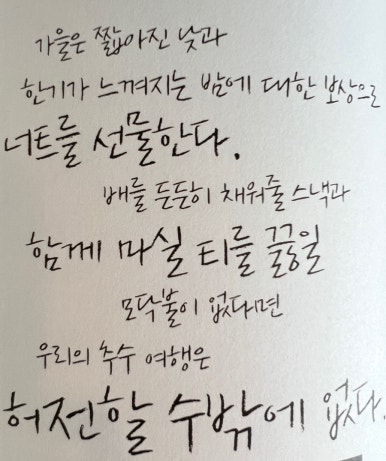 가을은 짧아진 낮과
한기가 느껴지는 밤에 대한 보상으로
너트를 선물한다.
배를 든든히 채워줄 스낵과
함께 마실 티를 끓일
모닥불이 없다면
우리의 추수 여행은
허전할 수밖에 없다.